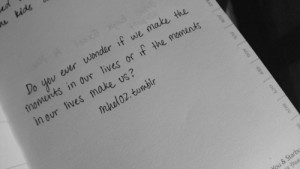 he kids
Do you ever wonder if we make the
moments in our lives or if the moments
in our lives make us?
mhel02.tumblr